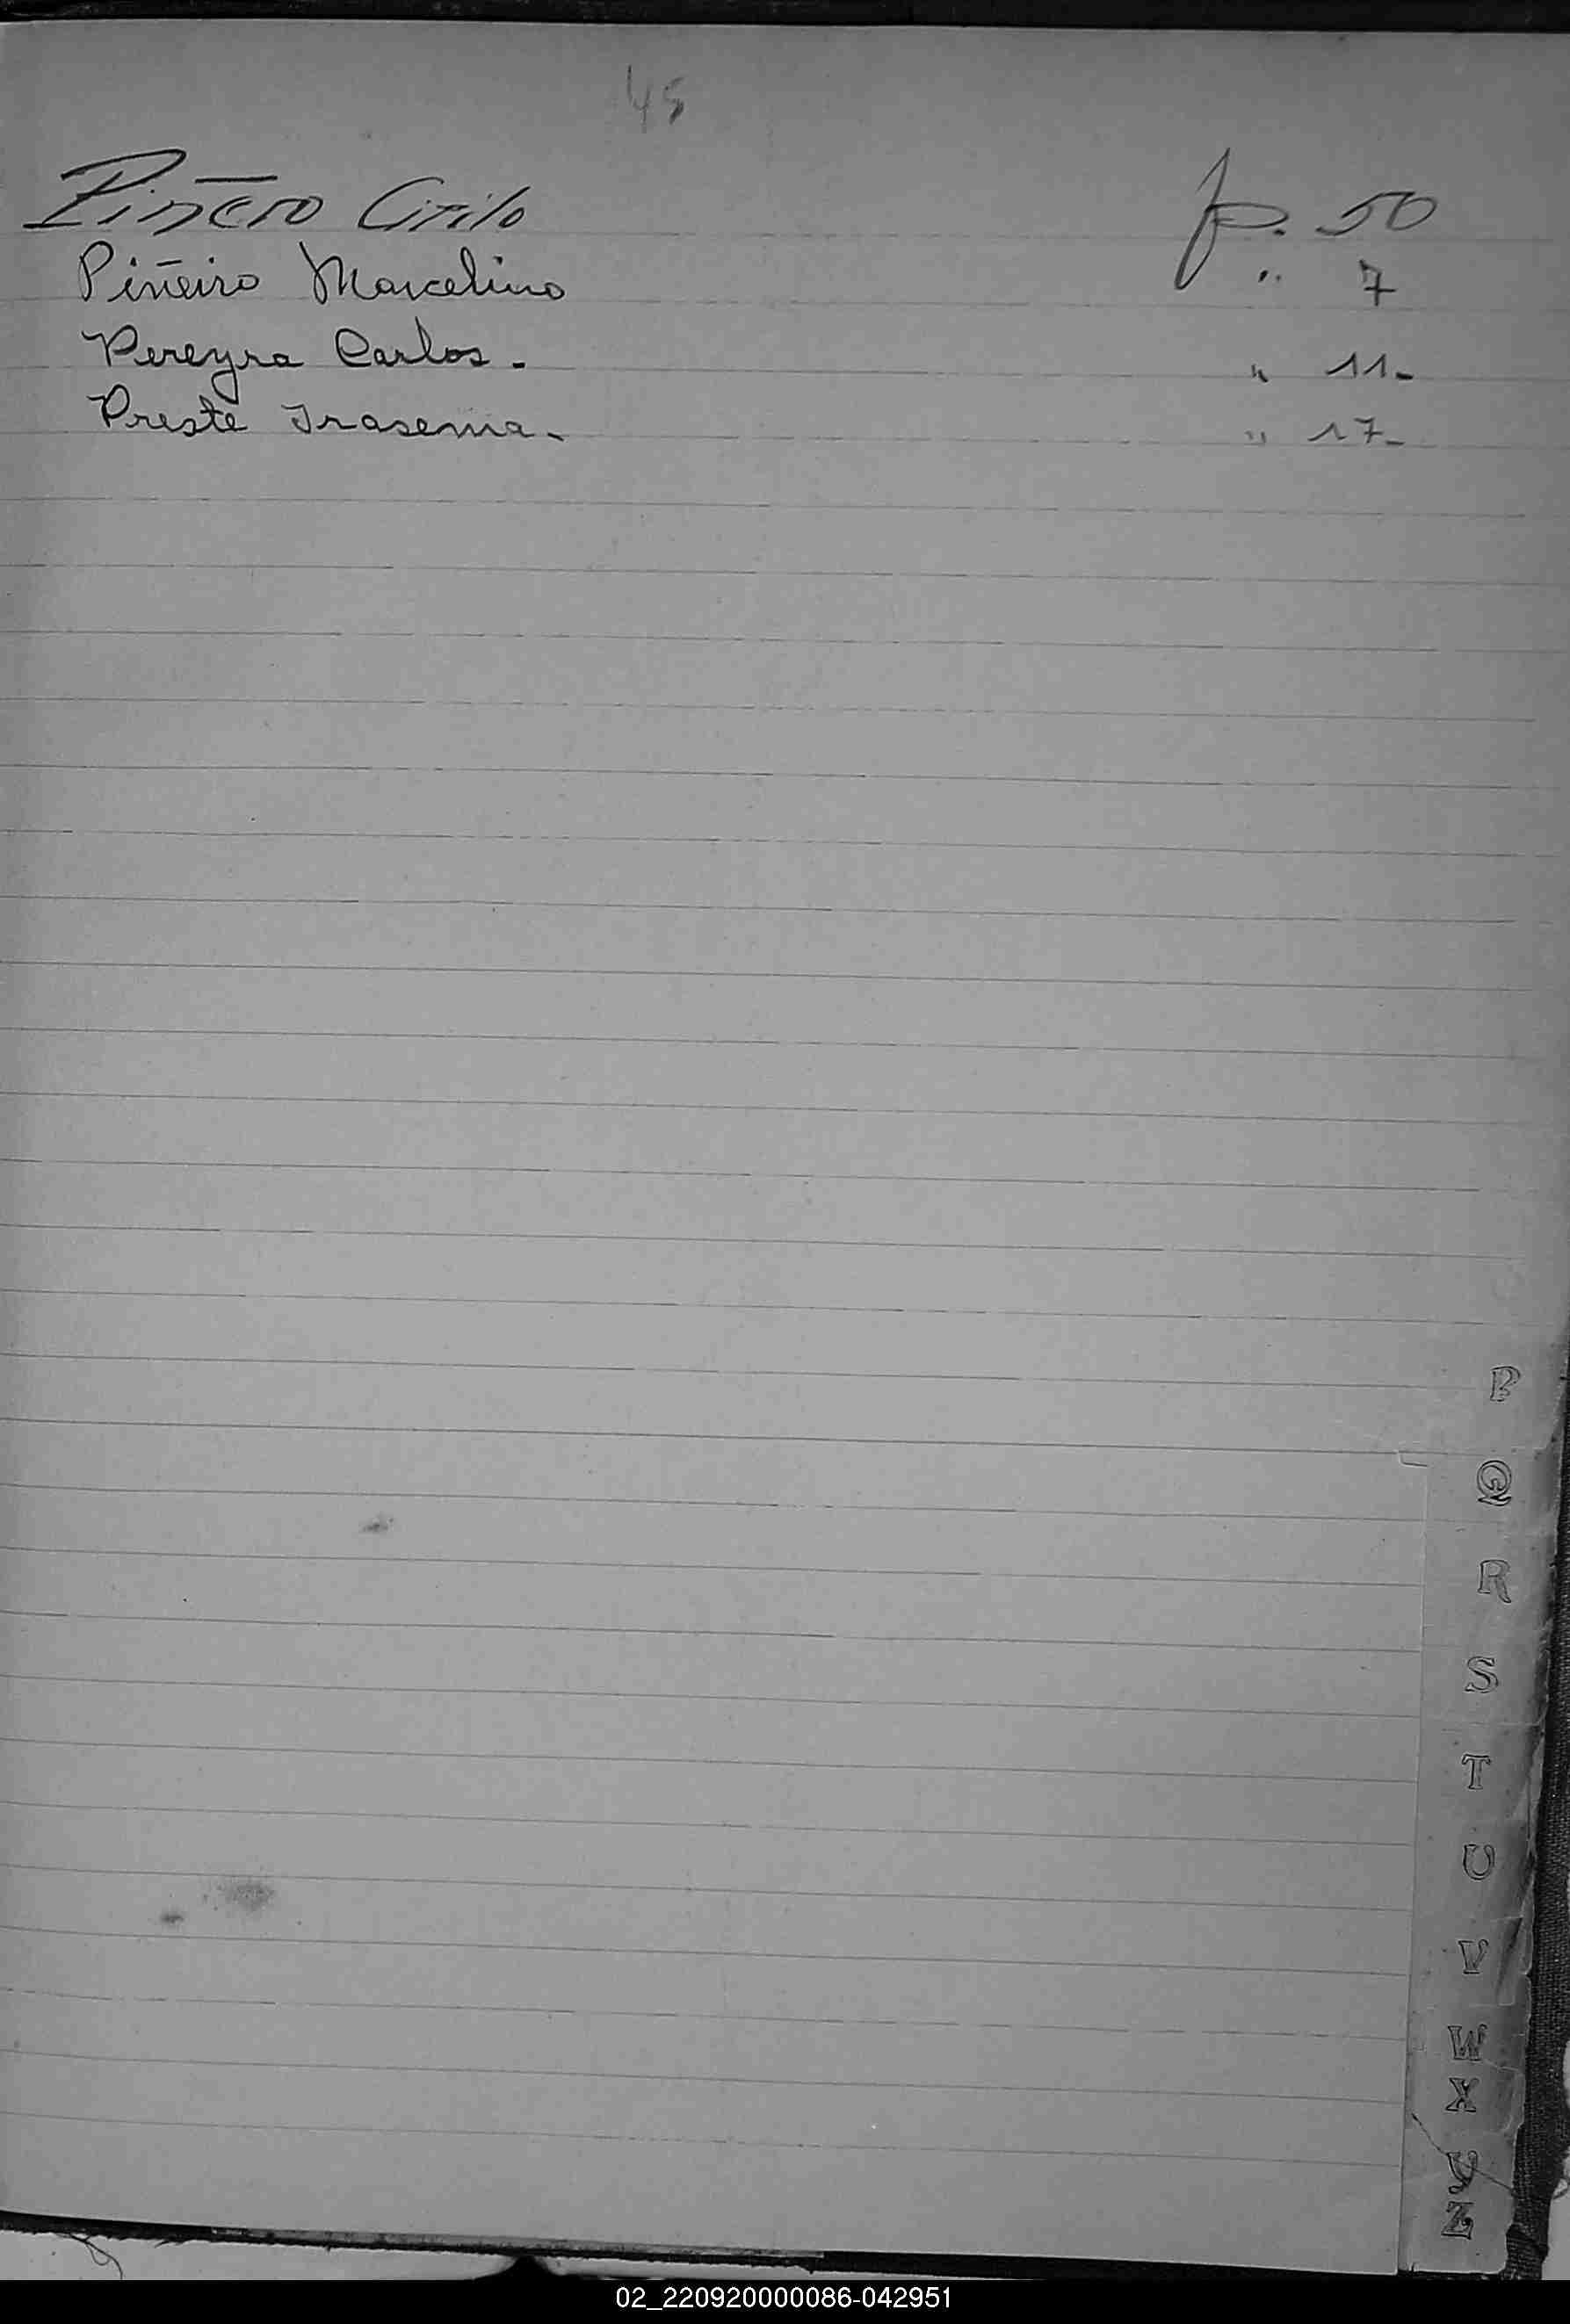 45
Piñero Cirilo p. 50
Piñeiro Marcelino " 7
Pereyra Carlos. " 11-
Preste Irasema. " 17-
P
Q
R
S
T
U
V
W
X
Y
Z
02_220920000086-042951